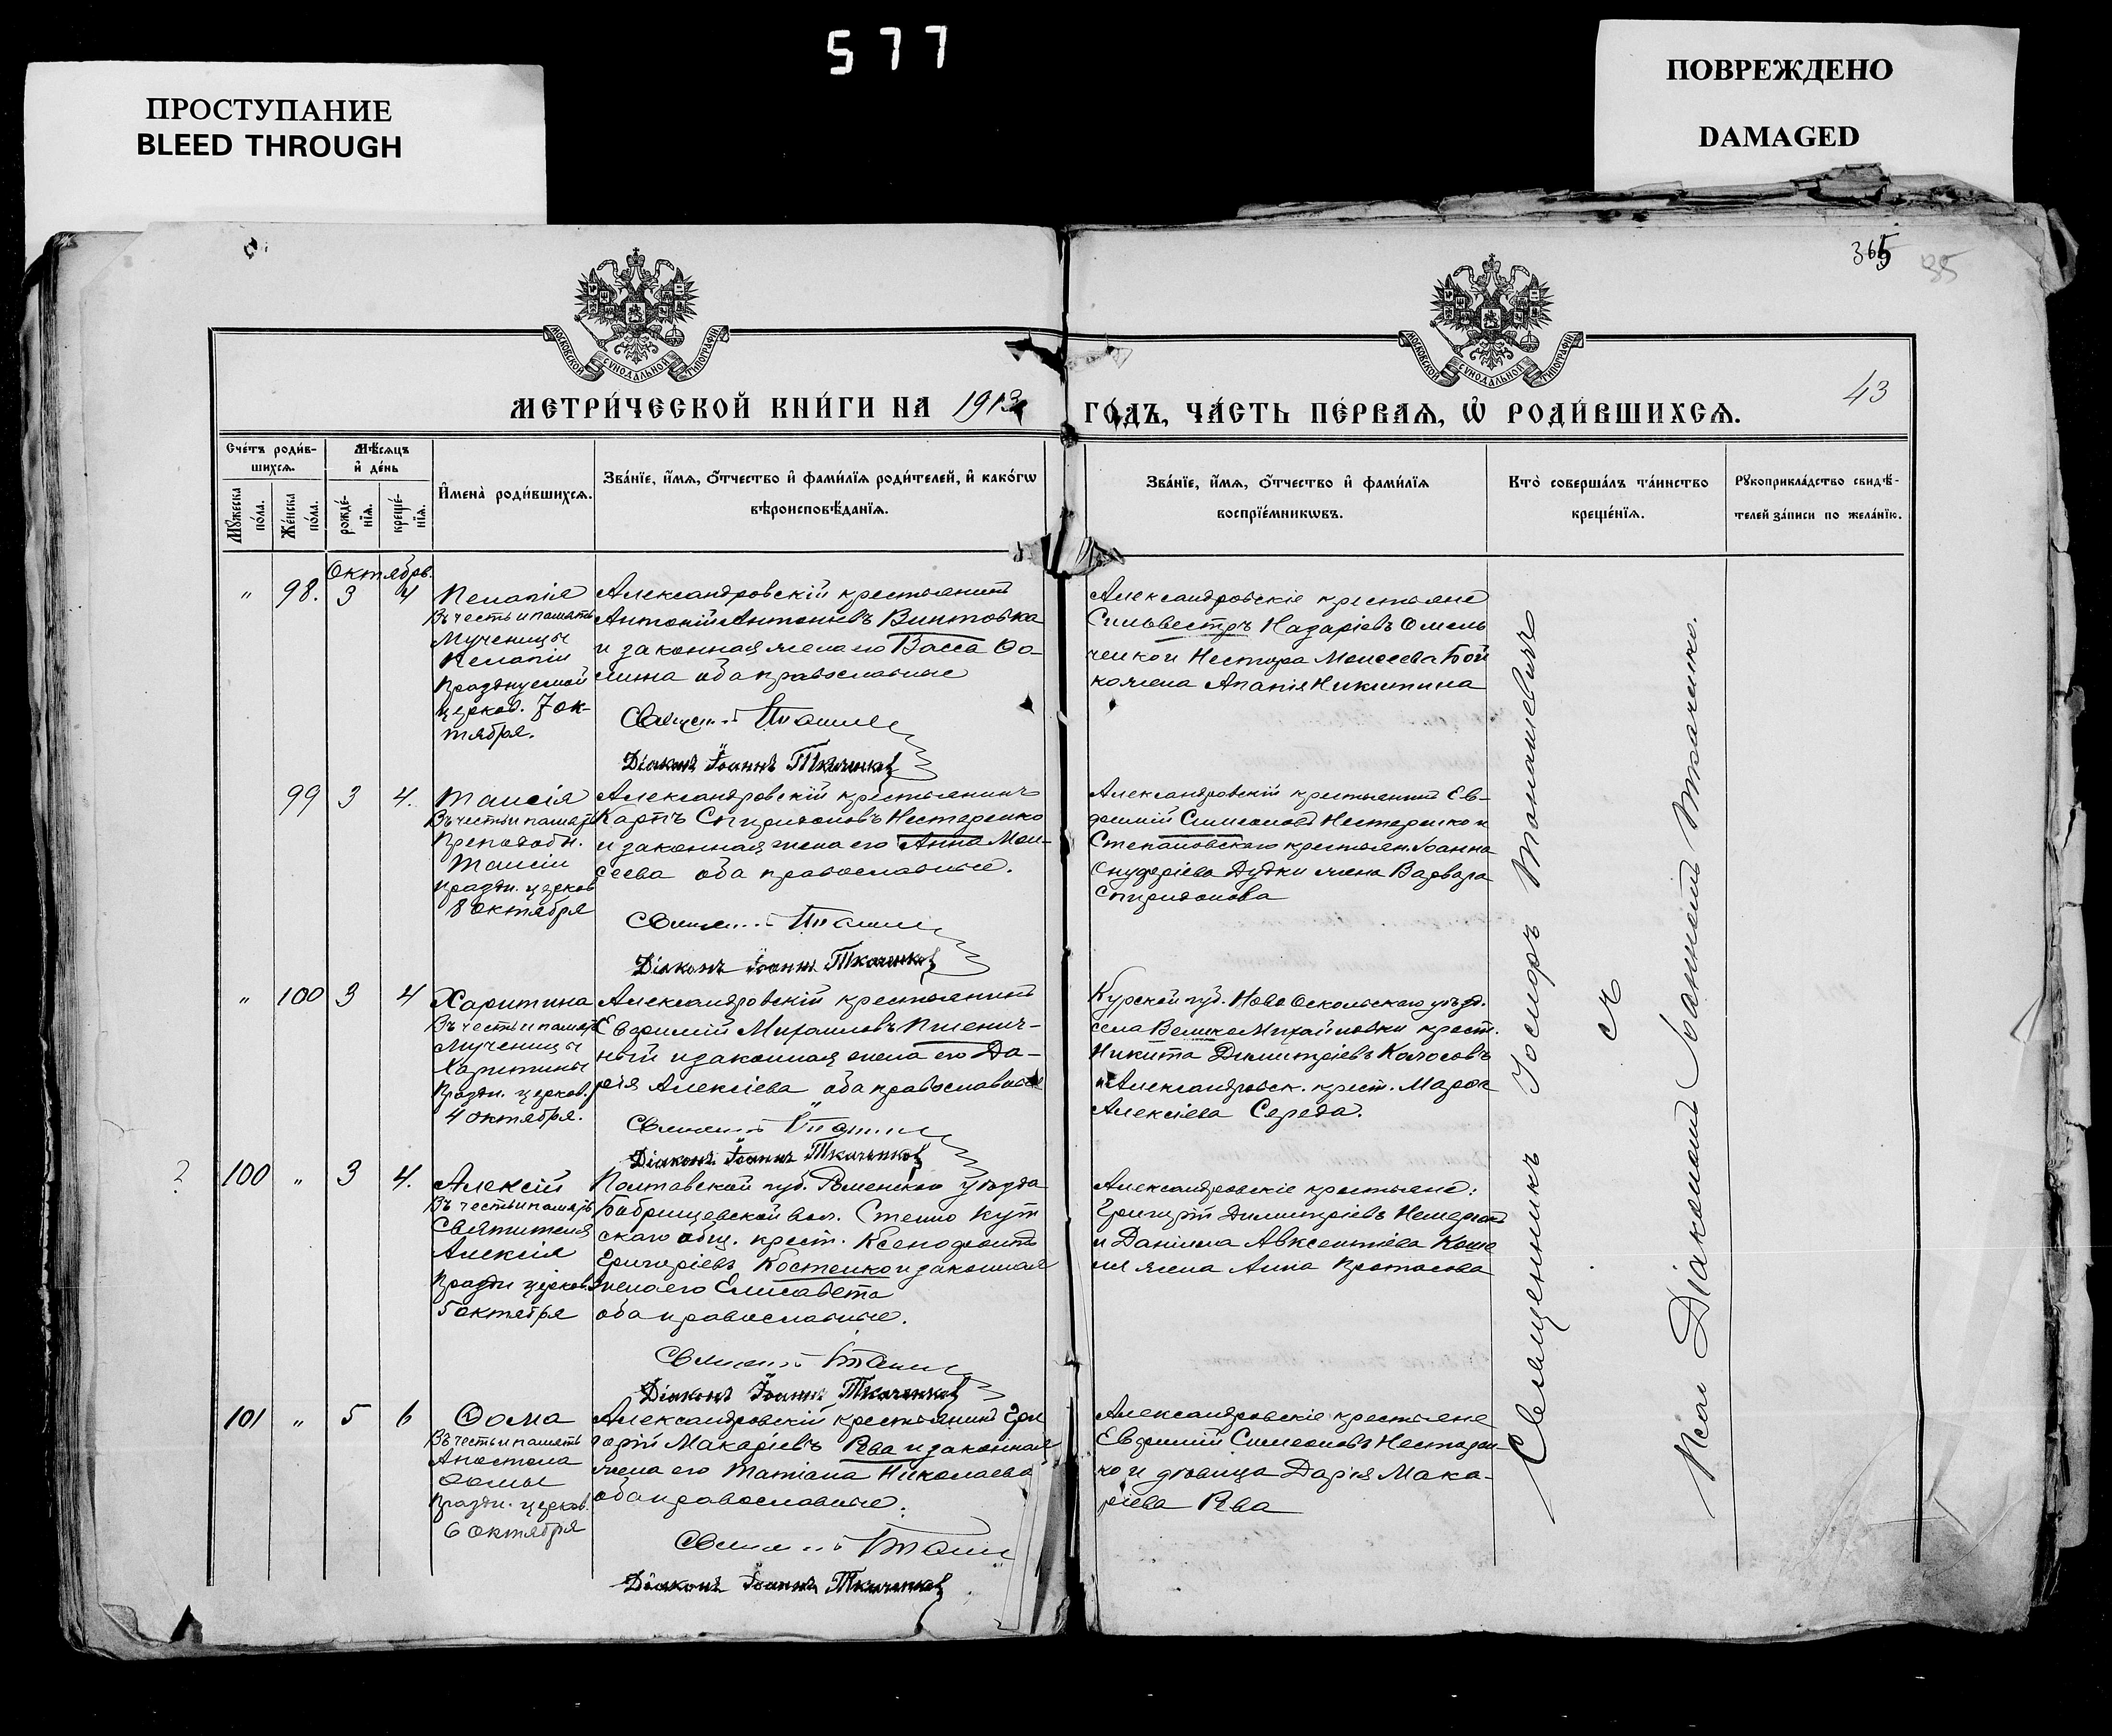 577
ПРОСТУПАНИЕ
BLEED THROUGH
ПОВРЕЖДЕНО
DAMAGED
365
35
МОСКОВСКОЙ СУНОДАЛЬНОЙ ТИПОГРАФІИ
МОСКОВСКОЙ СУНОДАЛЬНОЙ ТИПОГРАФІИ
43
МЕТРИ́ЧЕСКОЙ КНИ́ГИ НА 1913
ГО́ДЪ, ЧА́СТЬ ПЕ́РВАЯ, Ѡ҆ РОДИ́ВШИХСЯ.
Сче́тъ роди́в-
шихся.
Мѣ́сяцъ
и҆ де́нь
Мꙋ́жеска
по́ла.
Же́нска
по́ла.
рожде́-
нїя.
креще́-
нїя.
И҆мена̀ роди́вшихся.
Зва́нїе, и҆́мя, ѻ҆́тчество и҆ фами́лїя роди́телей, и҆ како́гѡ
вѣроисповѣ́данїя.
Зва́нїе, и҆́мя, ѻ҆́тчество и҆ фами́лїя
воспрїе́мникѡвъ.
Кто̀ соверша́лъ та́инство
креще́нїя.
Рꙋкоприкла́дство свидѣ́-
телей за́писи по жела́нїю.
Октябрь.
" 98. 3 4
Пелагія
Въ честь и память
Мученицы
Пелагіи
празднуемой
церков. 7 ок-
тября.
Александровскій крестьянинъ
Антоній Антоновъ Винтовка
и законная жена его Васса Фо-
мина оба православные
Діаконъ Іоаннъ Ткаченко
Александровскіе крестьяне
Сильвестръ Назаріевъ Омель
ченко и Нестора Моисеева Бой
ко жена Агапія Никитина
99 3 4.
Таисія
Въ честь и память
Преподобн.
Таисіи
праздн. церков
8 октября
Александровскій крестьянинъ
Карпъ Спиридоновъ Нестеренко
и законная жена его Анна Мои-
сеева оба православные.
Діаконъ Іоаннъ Ткаченко
Александровскій крестьянинъ Ев-
фимій Симеоновъ Нестеренко и
Степановскаго крестьян. Іоанна
Онуфріева Дудки жена Варвара
Спиридонова
" 100 3 4
Харитина
Въ честь и память
Мученицы
Харитины
Праздн. церков.
4 октября.
Александровскій крестьянинъ
Евфимій Михаиловъ Пшенич-
ный и законная жена его Да-
рія Алексіева оба православные
Діаконъ Іоаннъ Ткаченко
Курской губ. Ново Оскольскаго уѣзд.
села Велико Михайловки крест.
Никита Димитріевъ Колосовъ
и Александровск. крест. Марѳа
Алексіева Середа.
? 100 " 3 4.
Алексій
Въ честь и память
Святителя
Алексія
Праздн церков.
5 октября
Полтавской губ. Роменскаго уѣзда
вол. Степно Кут
скаго общ. крест. Ксенофонтъ
Григоріевъ Костенко и законная
жена его Елисавета
оба православные.
Діаконъ Іоаннъ Ткаченко
Александровскіе крестьяне:
Григорій Димитріевъ
и Даніила Авксентіева Коше
ля жена Анна Протасова
101 " 5 6
Ѳома
Въ честь и память
Апостола
Ѳомы
Праздн. церков.
6 октября
Александровскій крестьянинъ Гри
горій Макаріевъ Рева и законная
жена его Татіана Николаева
оба православные.
Діаконъ Іоаннъ Ткаченко
Александровскіе крестьяне
Евфимій Симеоновъ Нестерен-
ко и дѣвица Дарія Мака-
ріева Рева
Священникъ
съ
Діакономъ Іоанномъ Ткаченко.